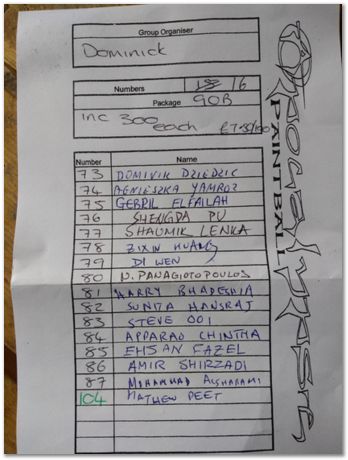 Group Organiser
Dominick
Numbers 16
Package 90B
inc 300 each
Number Name
73 DOMINIK DZIEDZIC
74 AGNIESZKA YAMROZ
75 GEBRIL ELFALLAH
76 SHENGDA PU
77 SHAUMIK LENKA
78 ZIXIN HUANG
79 DI WEN
80 N. PANAGIOTOPOULOS
81 HARRY BHADESHIA
82 SUNITA HANSRAJ
83 STEVE OOI
84 APPARAO CHINTHA
85 EHSAN FAZEL
86 AMIR SHIRZADI
87 MOHAMMAD
104 MATHEW PEET
APOCALYPSE
PAINTBALL